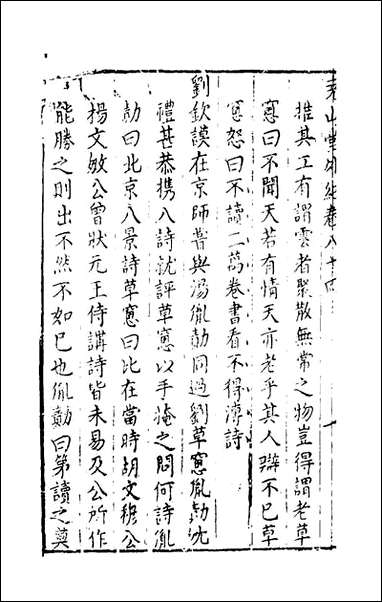 堯山堂外紀卷八十四
推其工有謂雲者聚散無常之物豈得謂老草
窻曰不聞天若有情天亦老乎其人辯不已草
窻怒曰不讀二萬卷書看不得溥詩
劉欽謨在京師普與湯胤勣同過劉草窻胤勣尤
禮甚恭携八詩就評草窻以手掩之問何詩胤
勣曰北京八景詩草窻曰比在當時胡文穆公
楊文敏公曾狀元王侍講詩皆未易及公所作
能勝之則出不然不如已也胤勣曰第讀之莫